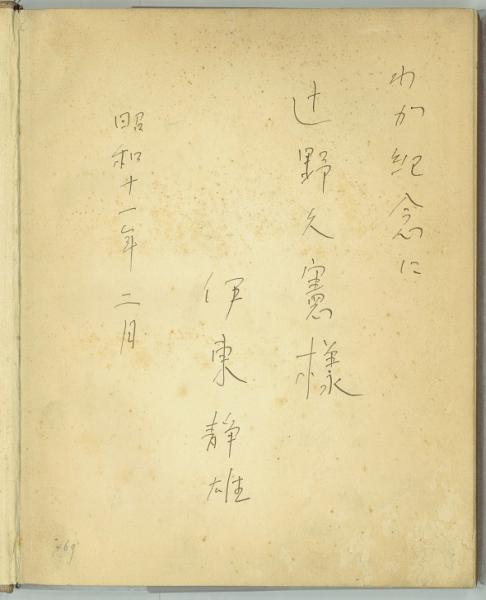 わが紀念に
辻野久憲様
伊東静雄
昭和十一年二月